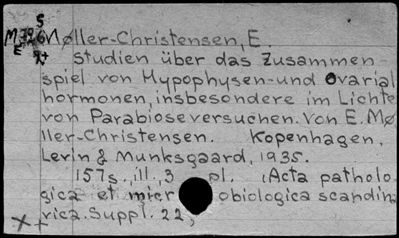 S
M 726 Møller-Christensen, E.
E 9+ Studien über das Zusammen-
spiel von Hypophysen-und Ovarial
hormonen, insbesondere im Lichte
von Parabioseversuchen. Von E. Mø
ller-Christensen. Kopenhagen,
Levin & Munksgaard, 1935.
157s., ill., 3 pl. (Acta patholo
gica et micr obiologica scandin
vica. Suppl. 22,